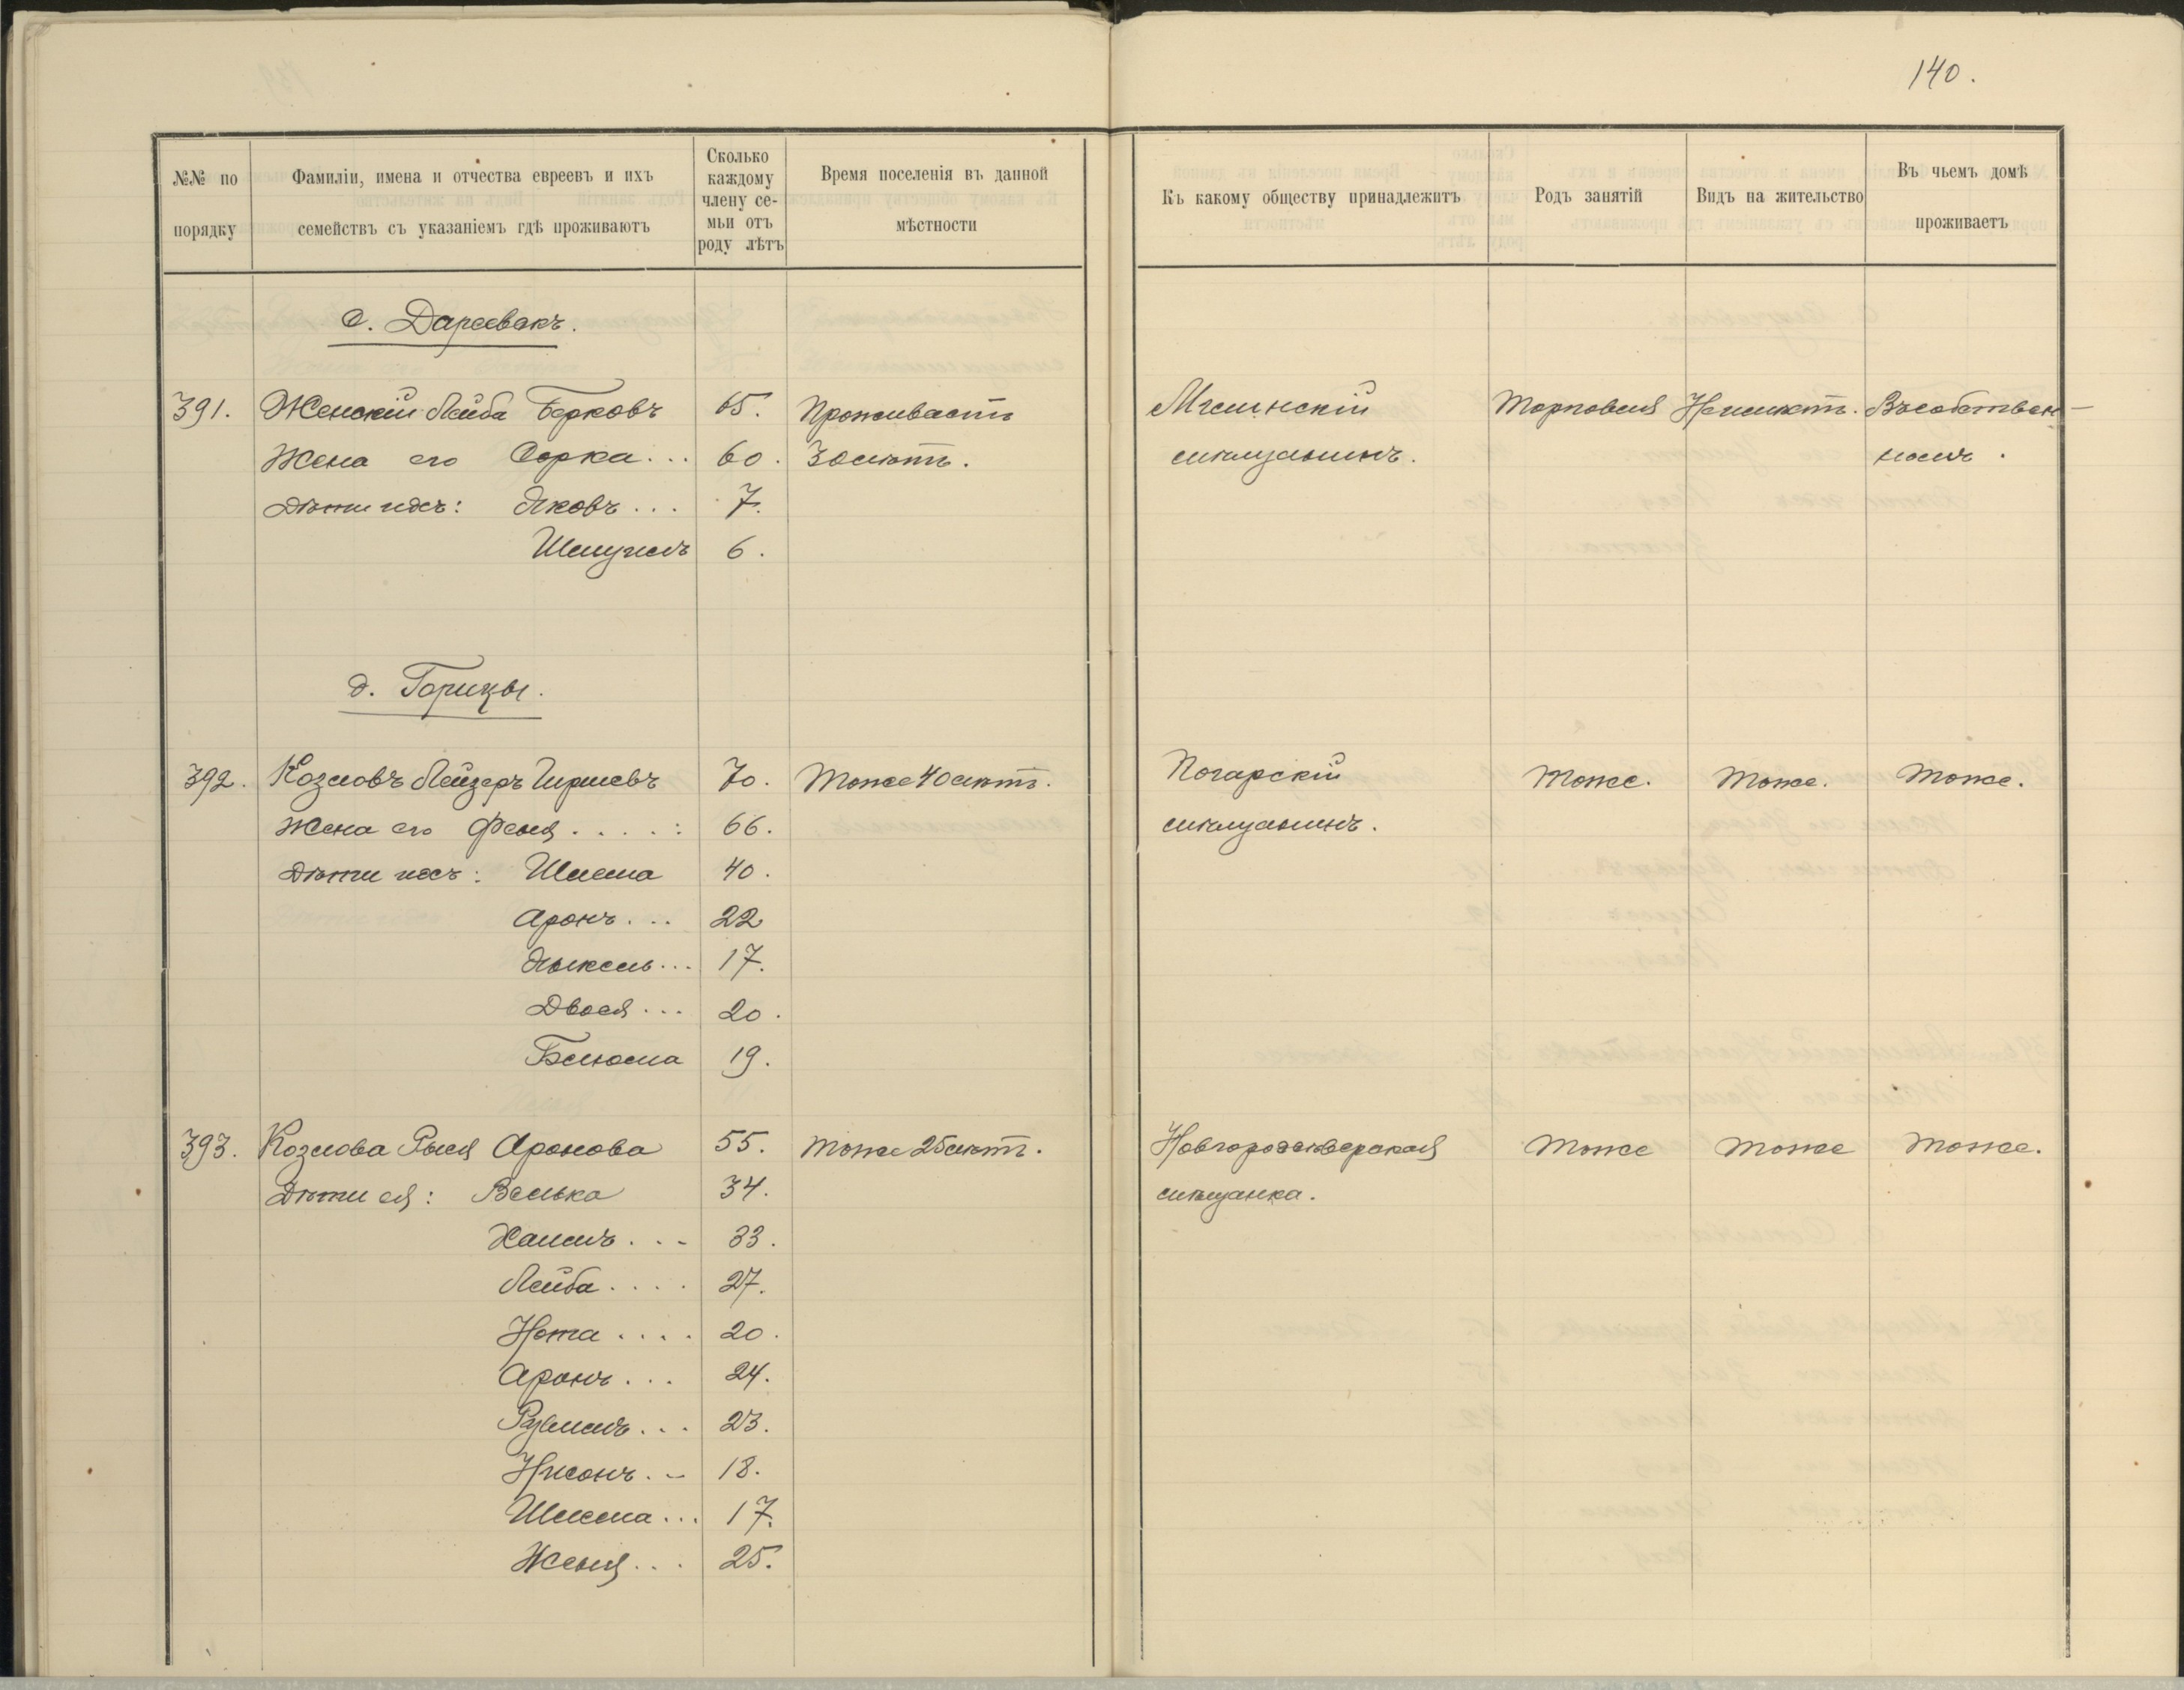 140.
№№ по порядку
Фамиліи, имена и отчества евреевъ и ихъ семействъ съ указаніемъ гдѣ проживаютъ
Сколько каждому члену семьи отъ роду лѣтъ
Время поселенія въ данной мѣстности
Къ какому обществу принадлежитъ
Родъ занятій
Видъ на жительство
Въ чьемъ домѣ проживаетъ
с. Дареевскъ.
391. Женскій Лейба Берковъ 65. Проживаетъ Мглинскій Торговля Неимѣетъ. Въ собствен-
Жена его Сорка... 60. 30 лѣтъ. мѣщанинъ. номъ.
Дѣти ихъ: Яковъ... 7.
Шмуилъ 6.
д. Горицы.
392. Козловъ Лейзеръ Гиршевъ 70. Тоже 40 лѣтъ. Погарскій Тоже. Тоже. Тоже.
Жена его Феня.... 66. мѣщанинъ.
Дѣти ихъ: Шлема 40.
Аронъ... 22
17.
Двося... 20.
Блюма 19.
393. Козлова Рыся Аронова 55. Тоже 25 лѣтъ. Новгородсѣверская Тоже Тоже Тоже.
Дѣти ея: Велька 34. мѣщанка.
Хаимъ... 33.
Лейба.... 27.
Нота.... 20.
Аронъ... 24.
23.
Нисонъ.. 18.
Шлема... 17.
Женя... 25.